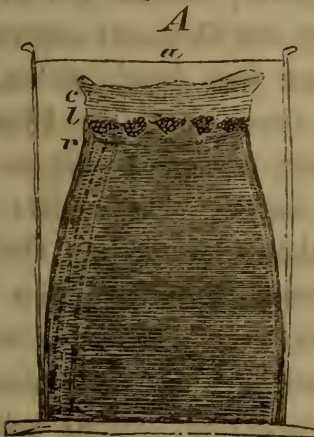 A
a,
c
l
r